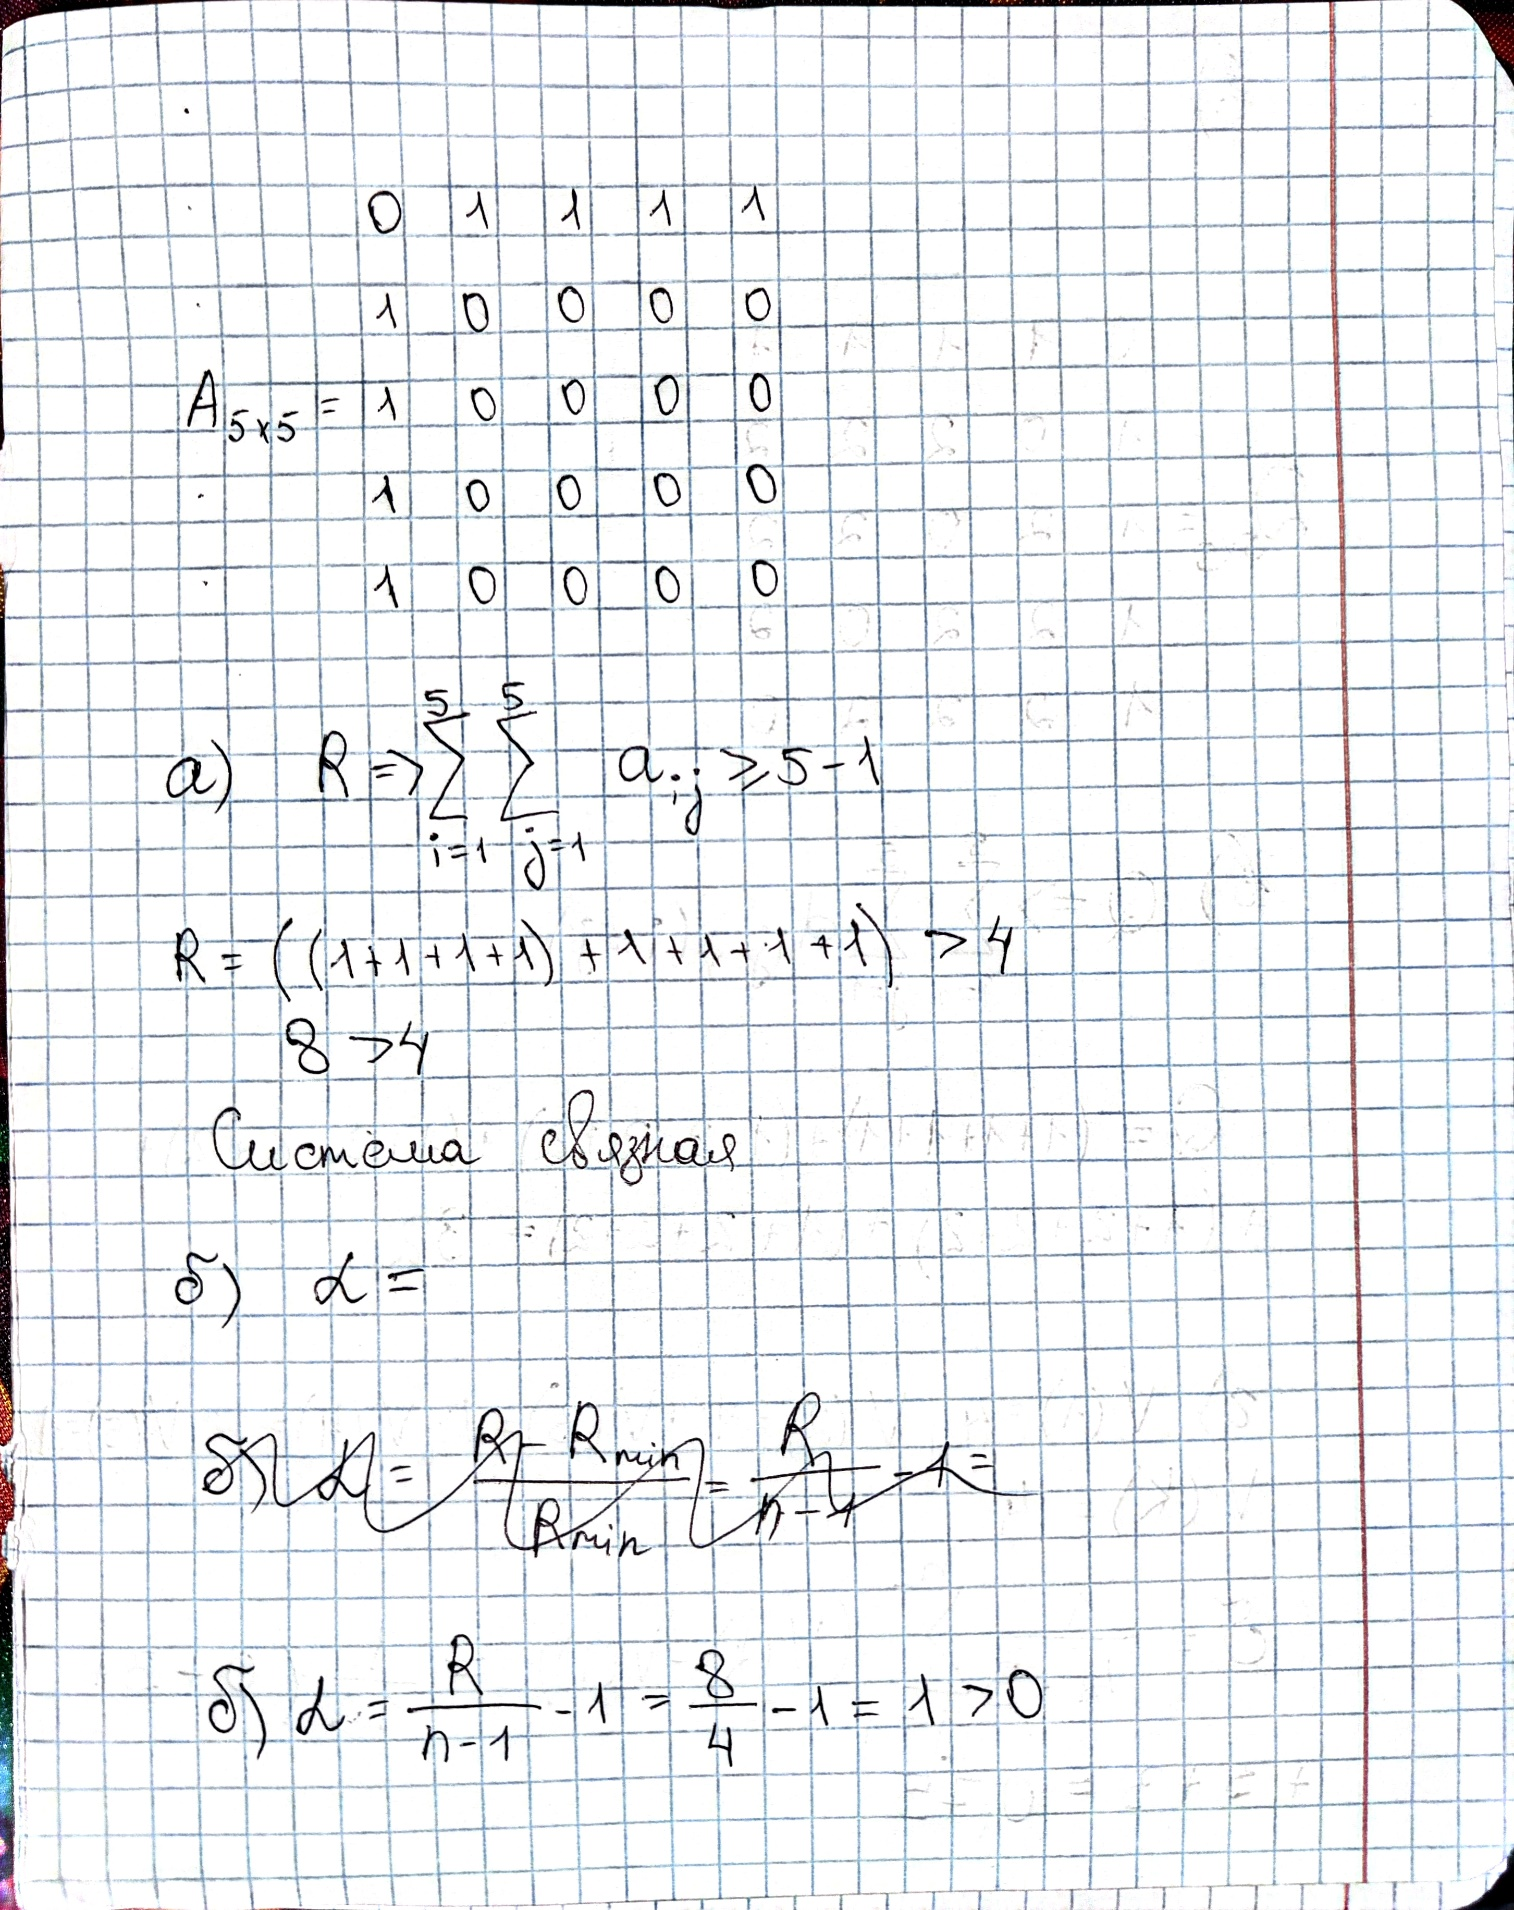 0 1 1 1 1
1 0 0 0 0
A₅ₓ₅ = 1 0 0 0 0
1 0 0 0 0
1 0 0 0 0
а) R => ∑_{i=1}^{5} ∑_{j=1}^{5} a_{ij} ≥ 5 - 1
R = ((1+1+1+1) + 1 + 1 + 1 + 1) > 4
8 > 4
Система связная
б) α =
б) α = (R - Rmin)/Rmin = R/(n-1) - 1 =
б) α = R/(n-1) - 1 = 8/4 - 1 = 1 > 0